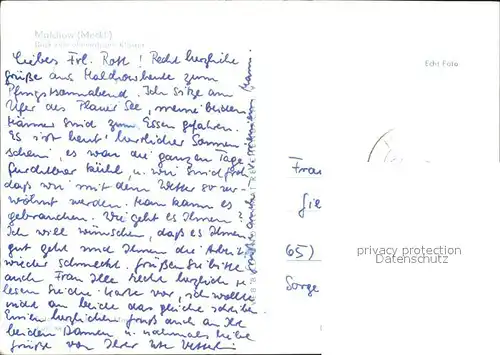 Malchow (Meckl.)
Liebes Frl. Rott! Recht herzliche
Grüße aus Malchow heute zum
Pfingstsonnabend. Ich sitze am
Ufer des Plauer See, meine beiden
Männer sind zum Essen gefahren.
Es ist heut' herrlicher Sonnen
schein, es war die ganzen Tage
furchtbar kühl, u. wir sind froh
daß wir mit dem Wetter so ver-
wöhnt werden. Man kann es
gebrauchen. Wie geht es Ihnen?
Ich will wünschen, daß es Ihnen
gut geht und Ihnen die Arbeit
wieder schmeckt. Grüßen Sie bitte
auch Frau Ille recht herzlich u.
lesen Sie die Karte vor, ich wollte
nicht an beide das gleiche schreiben.
Einen herzlichen Gruß auch an Ihre
beiden Damen u. nochmals liebe
Grüße von Ihrer
Echt Foto
Frau
Gie
65)
Sorge
privacy protection
Datenschutz